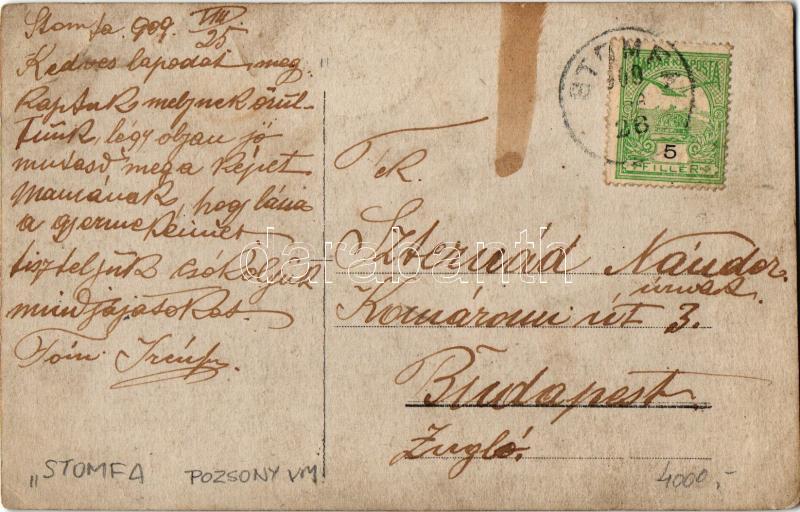 Stomfa. 909. VIII/25
Kedves lapodat meg-
kaptuk, melynek örül-
tünk, légy oljan jó
mutasd meg a képet
Mamának, hogy lássa
a gyermekeimet
tiszteljük csókoljuk
mindjájatokat.
Tóni Irénke
STOMFA
909
26
MAGYAR KIR. POSTA
5
FILLER
Tek.
Szternád Nándor
úrnak.
Komáromi út 3.
Budapest
Zugló.
darabanth
„STOMFA POZSONY VM.
4000,-